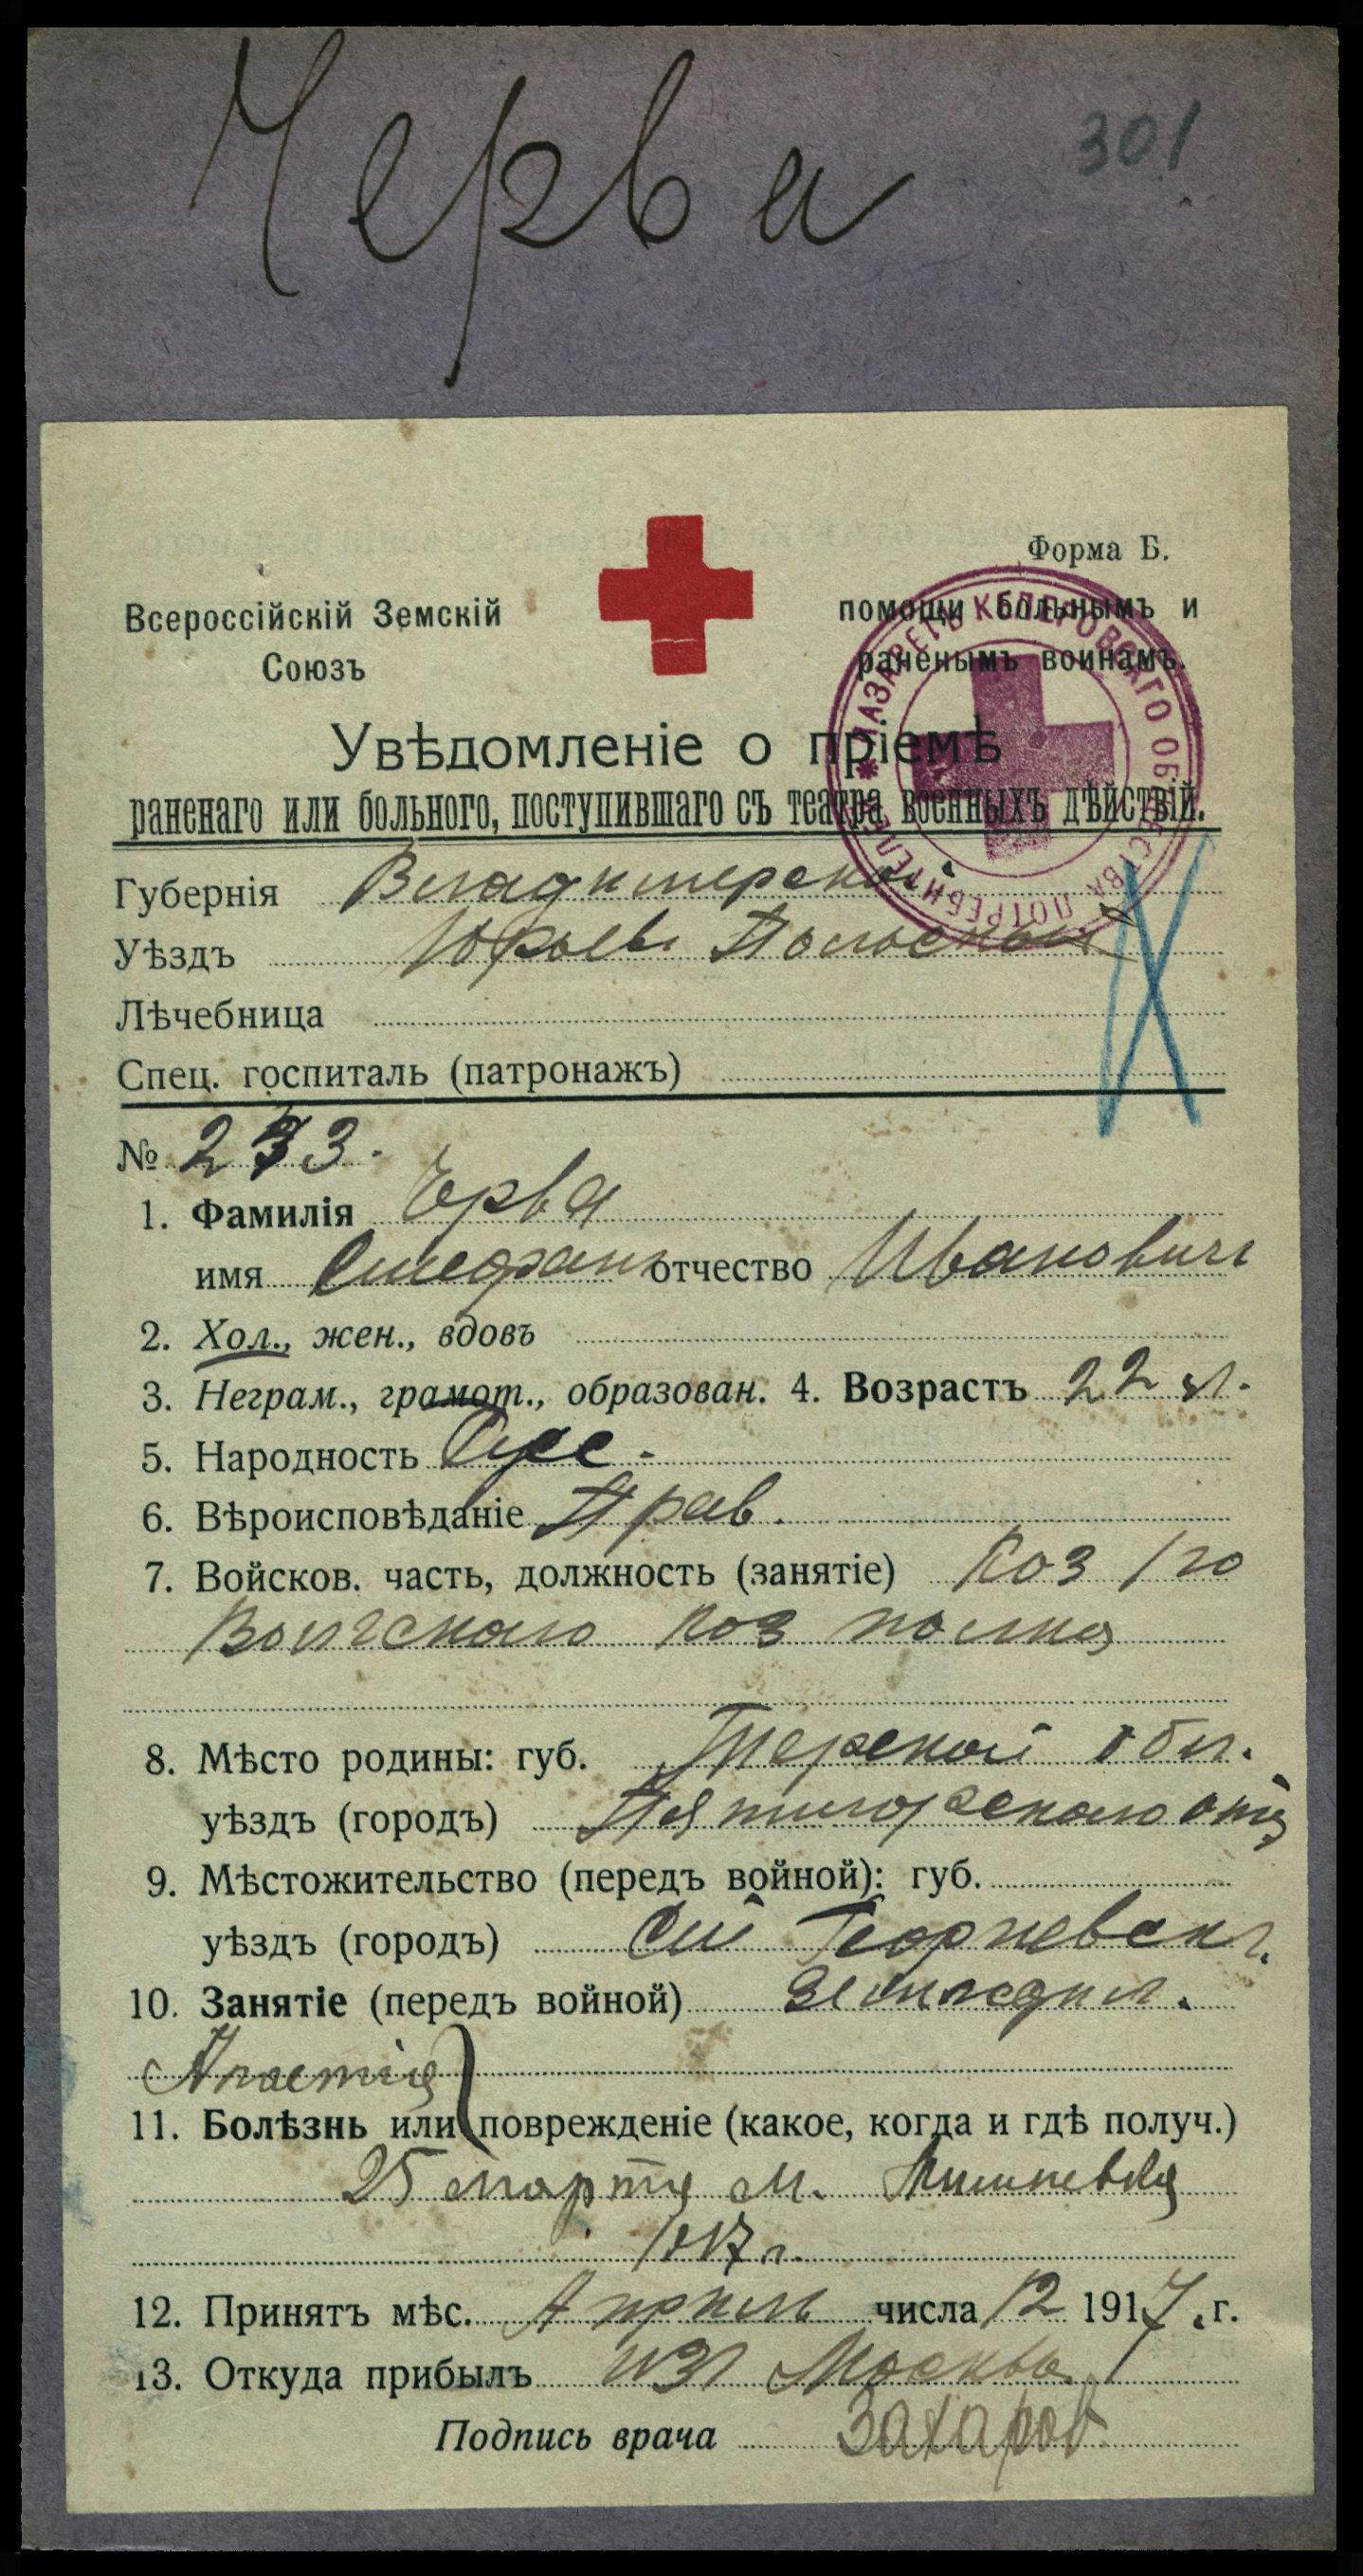 Черва
301
Форма Б.
Всероссійскій Земскій
Союзъ
помощи больнымъ и
раненымъ воинамъ.
Увѣдомленіе о пріемѣ
раненаго или больного, поступившаго съ театра военныхъ дѣйствій.
Губернія Владимерской
Уѣздъ Юрьевъ Польскый
Лѣчебница
Спец. госпиталь (патронажъ)
№ 233.
1. Фамилія Чрва
имя Стефанъ отчество Ивановичъ
2. Хол., жен., вдовъ
3. Неграм., грамот., образован. 4. Возрастъ 22 л.
5. Народность Рус.
6. Вѣроисповѣданіе Прав.
7. Войсков. часть, должность (занятіе) Коз 1го
Волгскаго Коз полка
8. Мѣсто родины: губ. Терской обл.
уѣздъ (городъ) Пятигорскаго отд
9. Мѣстожительство (передъ войной): губ.
уѣздъ (городъ) Ст Георгиевск.
10. Занятіе (передъ войной) земледил.
11. Болѣзнь или поврежденіе (какое, когда и гдѣ получ.)
25 марта м.
1917 г.
12. Принятъ мѣс. Апрель числа 12 1917 г.
13. Откуда прибылъ изъ Москвы
Подпись врача Захаров